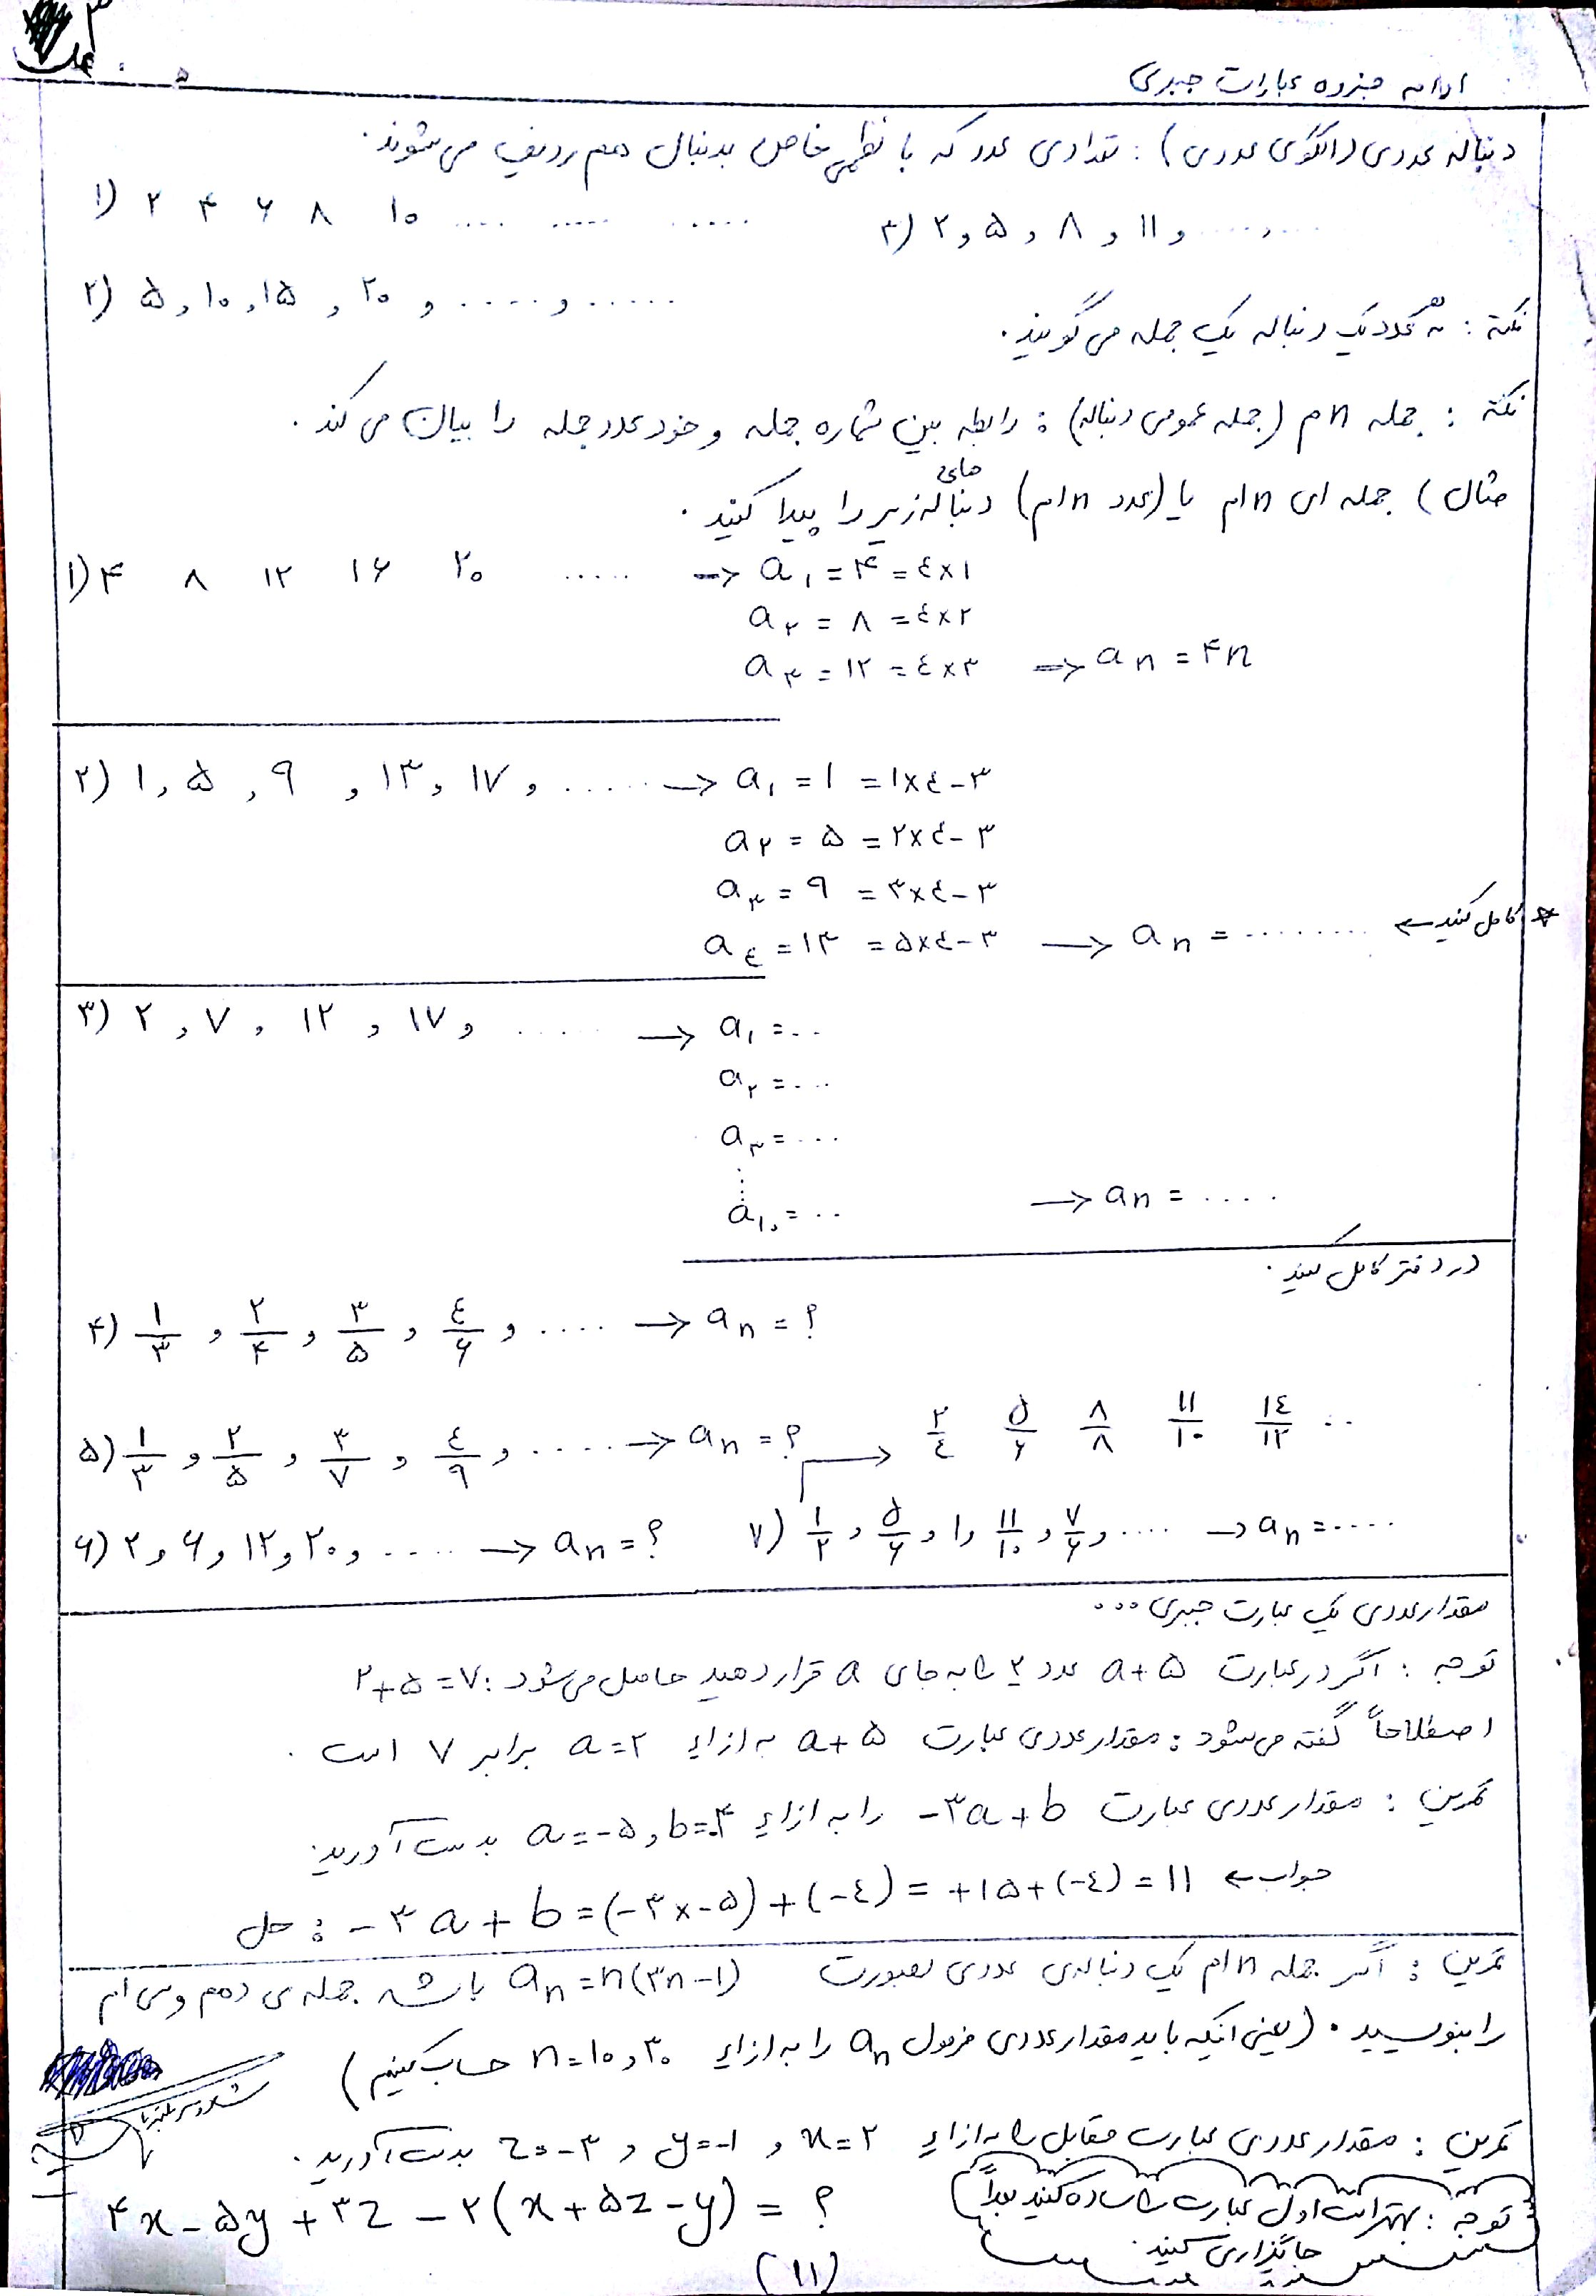 ادامه جزوه عبارات جبری
دنباله عددی (الگوی عددی) : تعدادی عدد که با نظمی خاص بدنبال هم ردیف می شوند.
۱) ۲ ۴ ۶ ۸ ۱۰ .... ..... ......
۳) ۲ , ۵ , ۸ , ۱۱ , ..... , ....
۲) ۵ , ۱۰ , ۱۵ , ۲۰ , ..... , ......
نکته : هر عدد یک دنباله یک جمله می گویند.
نکته : جمله n م (جمله عمومی دنباله) : رابطه بین شماره جمله و خود عدد جمله را بیان می کند.
مثال) جمله ای n ام یا (عدد n ام) دنباله های زیر را پیدا کنید.
۱) ۴ ۸ ۱۲ ۱۶ ۲۰ ..... → a۱ = ۴ = ٤×۱
a۲ = ۸ = ٤×۲
a۳ = ۱۲ = ٤×۳ → an = ۴n
۲) ۱ , ۵ , ۹ , ۱۳ , ۱۷ , ...... → a۱ = ۱ = ۱×٤-۳
a۲ = ۵ = ۲×٤-۳
a۳ = ۹ = ۳×٤-۳
a٤ = ۱۳ = ۵×٤-۳ → an = ......... ← کامل کنید *
۳) ۲ , ۷ , ۱۲ , ۱۷ , ..... → a۱ = ..
a۲ = ...
a۳ = ...
⋮
a۱۰ = .. → an = ....
در دفتر کامل کنید.
۴) ۱/۳ , ۲/۴ , ۳/۵ , ٤/۶ , .... → an = ؟
۵) ۱/۳ , ۲/۵ , ۳/۷ , ٤/۹ , ..... → an = ؟
→ ۲/٤ ۵/۶ ۸/۸ ۱۱/۱۰ ۱٤/۱۲ ..
۶) ۲ , ۶ , ۱۲ , ۲۰ , ..... → an = ؟
۷) ۱/۲ , ۵/۶ , ۱ , ۱۱/۱۰ , ۷/۶ , .... → an = ....
مقدار عددی یک عبارت جبری ...
توجه : اگر در عبارت a+۵ عدد ۲ را به جای a قرار دهید حاصل می شود : ۲+۵=۷
اصطلاحاً گفته می شود : مقدار عددی عبارت a+۵ به ازاء a=۲ برابر ۷ است .
تمرین : مقدار عددی عبارت -۳a+b را به ازاء a=-۵ , b=-۴ بدست آورید:
جواب ← حل : -۳a+b=(-۳×-۵)+(-٤)=+۱۵+(-٤)=۱۱
تمرین : اگر جمله n ام یک دنباله‌ی عددی بصورت an=n(۳n-۱) باشد جمله ی دهم و سی ام
را بنویسید . (یعنی اینکه باید مقدار عددی فرمول an را به ازاء n=۱۰,۳۰ حساب کنیم)
تمرین : مقدار عددی عبارت مقابل را به ازاء x=۲ , y=-۱ , z=-۳ بدست آورید.
۴x-۵y+۳z-۲(x+۵z-y)=؟
توجه : بهتر است اول عبارت را ساده کنید بعداً
جایگذاری کنید.
(۱۱)